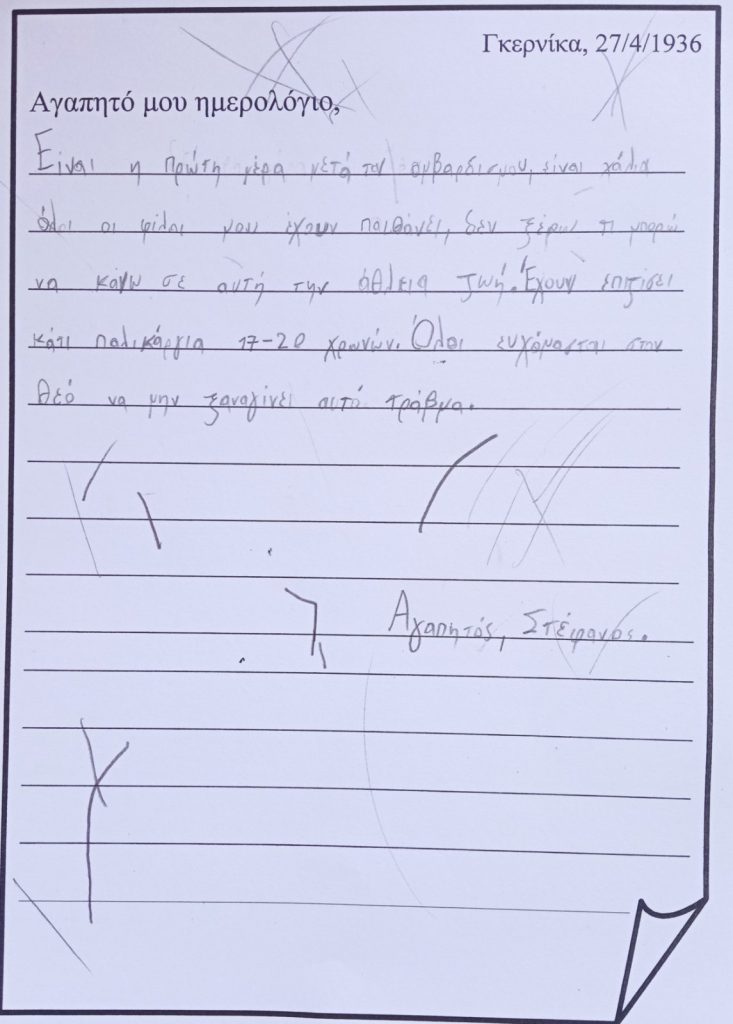 Γκερνίκα, 27/4/1936
Αγαπητό μου ημερολόγιο,
Είναι η πρώτη μέρα μετά τον ομβαρδισμου, είναι χάλια
όλοι οι φίλοι μου έχουν παιθάνει, δεν ξέρω τι μπορώ
να κανω σε αυτή την άθλεια ζωή. Έχουν επιζίσει
κάτι παλικάργια 17-20 χρωνών. Όλοι ευχόμασται στον
θεό να μην ξαναγίνει αυτό τράβμα.
Αγαπητός, Στέφανος.